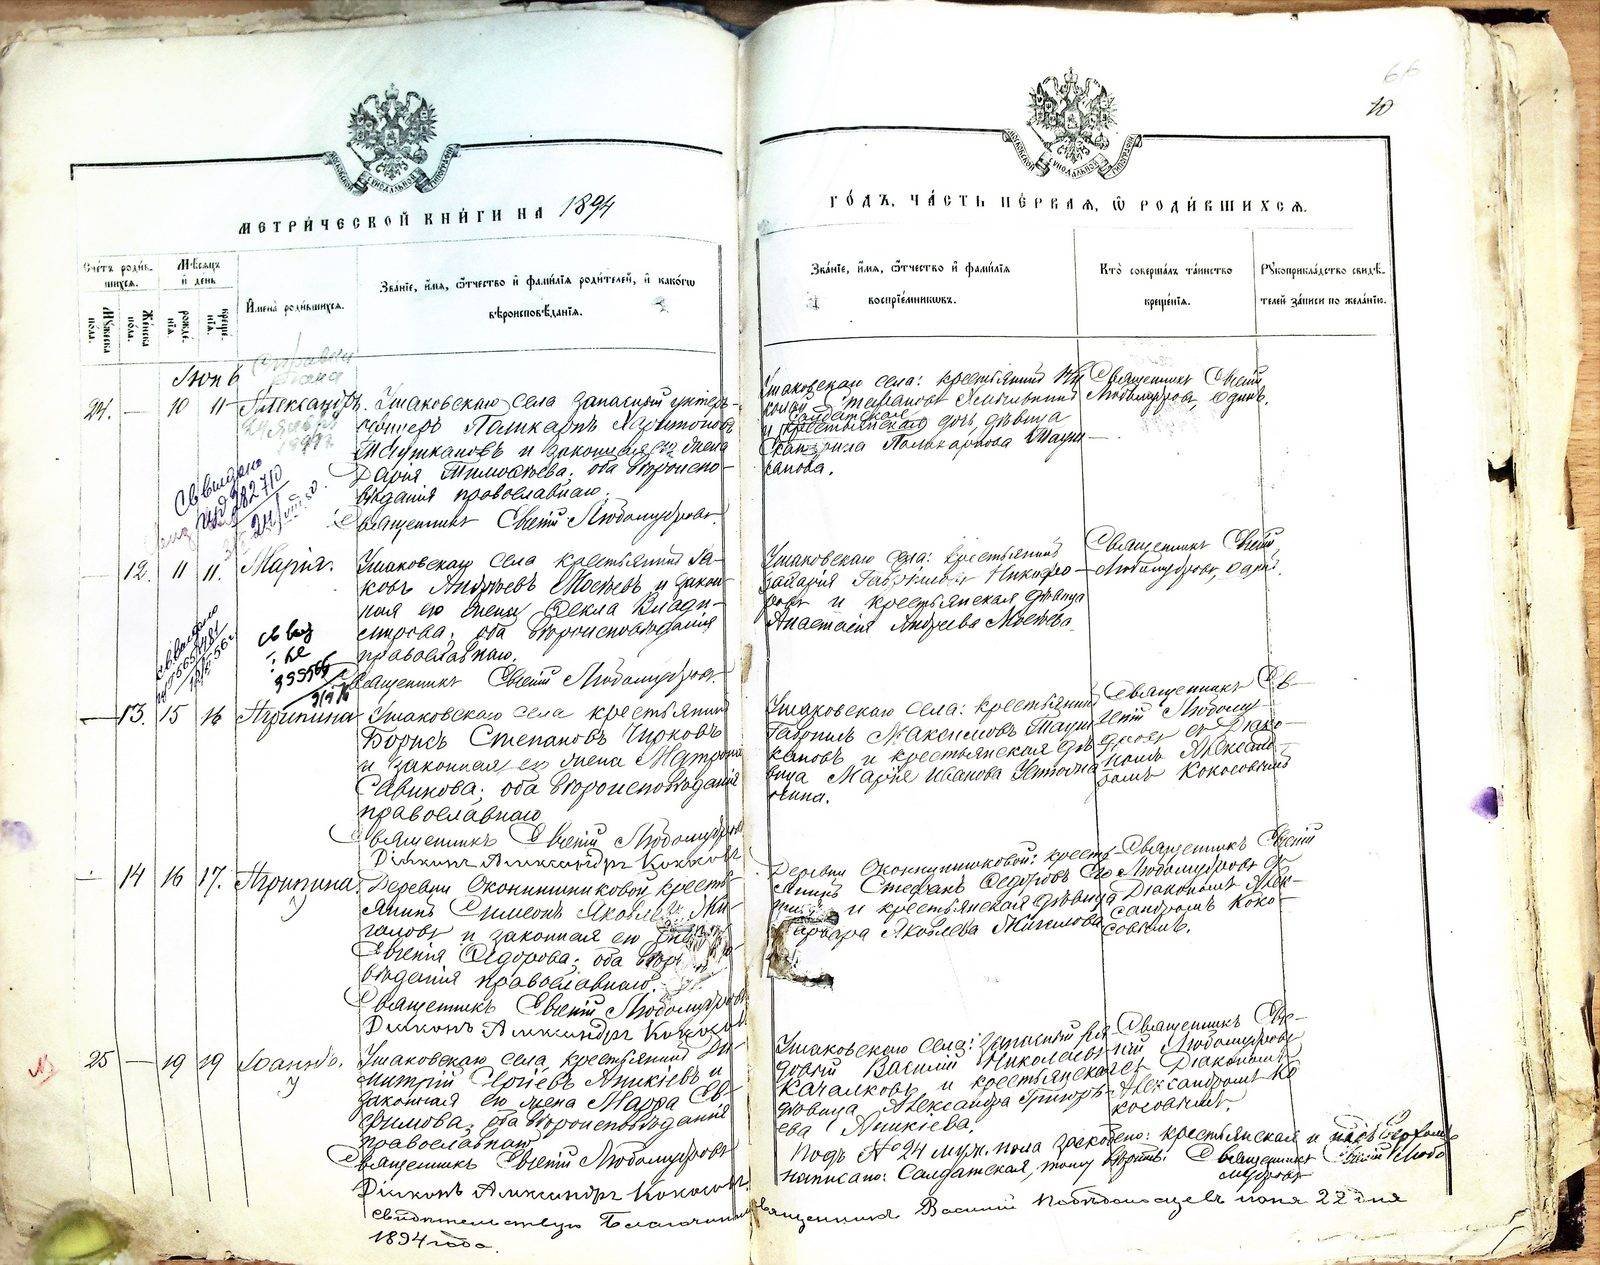 66
10
МОСКОВСКОЙ СѴНОДАЛЬНОЙ ТИПОГРАФІИ
МОСКОВСКОЙ СѴНОДАЛЬНОЙ ТИПОГРАФІИ
МЕТРИ́ЧЕСКОЙ КНИ́ГИ НА 1894
ГО́ДЪ, ЧА́СТЬ ПЕ́РВАЯ, Ѡ҆ РОДИ́ВШИХСЯ.
Сче́тъ роди́в-
шихся.
Му́жеска по́ла.
Же́нска по́ла.
Мѣ́сяцъ и҆ де́нь
рожде́нїя.
креще́нїя.
И҆мена̀ роди́вшихся.
Зва́нїе, и҆́мя, ѻ҆́тчество и҆ фами́лїя роди́телей, и҆ како́гѡ
вѣроисповѣ́данїя.
Зва́нїе, и҆́мя, ѻ҆́тчество и҆ фами́лїя
воспрїе́мникѡвъ.
Кто̀ соверша́лъ та́инство
креще́нїя.
Рꙋкоприкла́дство свидѣ́-
телей за́писи по жела́нїю.
Справка
дана
Іюнь
24. — 10 11 Александръ.
Ушаковскаго села запасный унтеръ-
офицеръ Поликарпъ Харитоновъ
и законная его жена
Дарія Тимофеева, оба вѣроиспо-
вѣданія православнаго.
Священникъ Евгеній Любомудровъ.
Ушаковскаго села: крестьянинъ Ни-
колай
солдатская
и крестьянская дочь, дѣвица
Поликарпова
Священникъ Евгеній
Любомудровъ, одинъ.
— 12. 11 11. Марія.
Ушаковскаго села крестьянинъ Яковъ Андреевъ Мосеевъ и закон-
ная его жена Фекла Влади-
мірова, оба вѣроисповѣданія
православнаго.
Священникъ Евгеній Любомудровъ.
Ушаковскаго села: крестьянинъ
Захарія Гавріиловъ Никифо-
ровъ и крестьянская дѣвица
Анастасія Андреева Мосеева.
Священникъ Евгеній
Любомудровъ, одинъ.
— 13. 15 16 Агрипина
Ушаковскаго села крестьянинъ
Борисъ Степановъ Чирковъ
и законная его жена Матрона
Савинова; оба вѣроисповѣданія
православнаго
Священникъ Евгеній Любомудровъ
Діаконъ Александръ Кокосовъ
Ушаковскаго села: крестьянинъ
Гавріилъ Максимовъ
и крестьянская дѣ-
вица Марія Иванова
Священникъ Ев-
геній Любому-
дровъ съ Діако-
номъ Александ-
ромъ Кокосовымъ
— 14 16 17. Агрипина.
Деревни Оконишниковой кресть-
янинъ Симеонъ Яковлевъ Жи-
галовъ и законная его
Евгенія Федорова; оба
вѣданія православнаго.
Священникъ Евгеній Любомудровъ
Діаконъ Александръ Кокосовъ
Деревни Оконишниковой: кресть-
янинъ Стефанъ Федоровъ
и крестьянская дѣвица
Варвара Яковлева Жигалова
Священникъ Евгеній
Любомудровъ съ
Діакономъ Алек-
сандромъ Коко-
совымъ.
25 — 19 19 Іоаннъ.
Ушаковскаго села, крестьянинъ Ди-
митрій Сергіевъ Аникіевъ и
законная его жена Марфа Ев-
фимова, оба вѣроисповѣданія
православнаго
Священникъ Евгеній Любомудровъ
Діаконъ Александръ Кокосовъ.
Ушаковскаго села: запасный ря-
довый Василій Николаевъ
Качалковъ, и крестьянская
дѣвица Александра Григорь-
ева Аникіева.
Священникъ Евге-
ній Любомудровъ
съ Діакономъ
Александромъ Ко-
косовымъ.
Подъ № 24 муж. пола зачеркнуто: крестьянская и
написано: Солдатская, тому вѣрить. Священникъ Евгеній Любо
мудровъ
свидѣтельствую Благочинный Священникъ Василій Побѣдоносцевъ іюня 22 дня
1894 года.